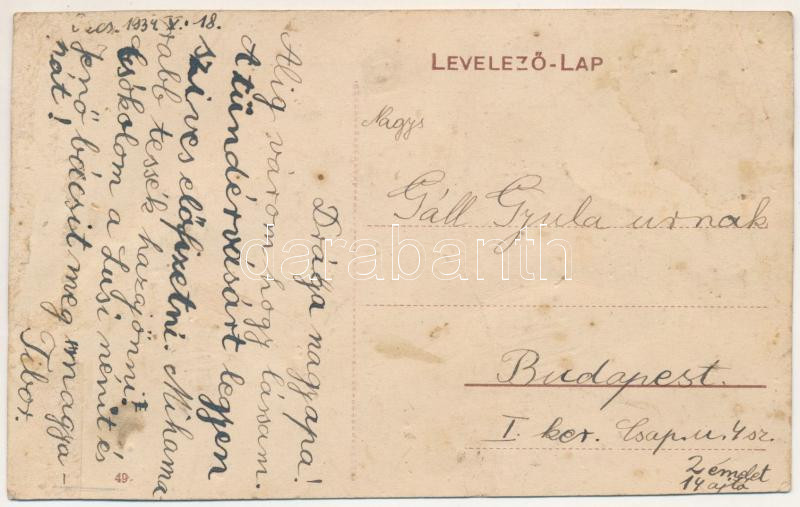 Pécs. 1934 V. 18.
Drága nagyapa!
Alig várom, hogy lássam.
A tündérvásárt legyen
szives előfizetni. Mihama-
rabb tessék hazajönni.
Csókolom a Lusi nénit és
Jenő bácsit meg magja-
nát!
Tibor.
49
LEVELEZŐ-LAP
Nagys
Gáll Gyula urnak
Budapest.
I. ker. Csap. u. 4 sz.
2 emelet
14 ajtó
darabanth